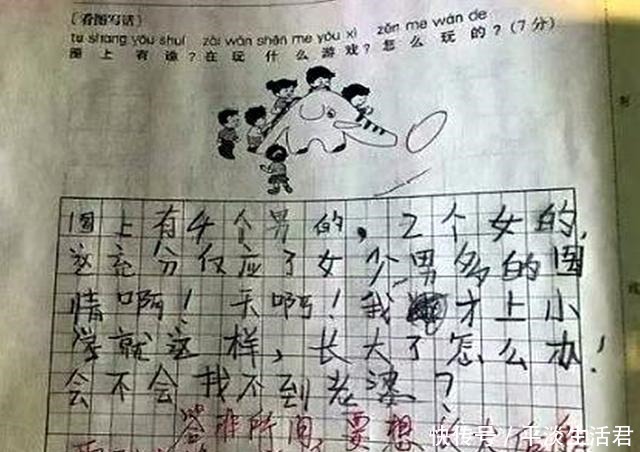 〔看图写话〕
tu shang you shuí zài wán shén me yóu xì zěn me wán de
图上有谁？在玩什么游戏？怎么玩的？(7分)
图上有4个男的，2个女的，
这充分仅应了女少男多的国
情啊！天啊！我才上小
学就这样，长大了怎么办！
会不会找不到老婆？
答非所问，要想
快传号／平淡生活君